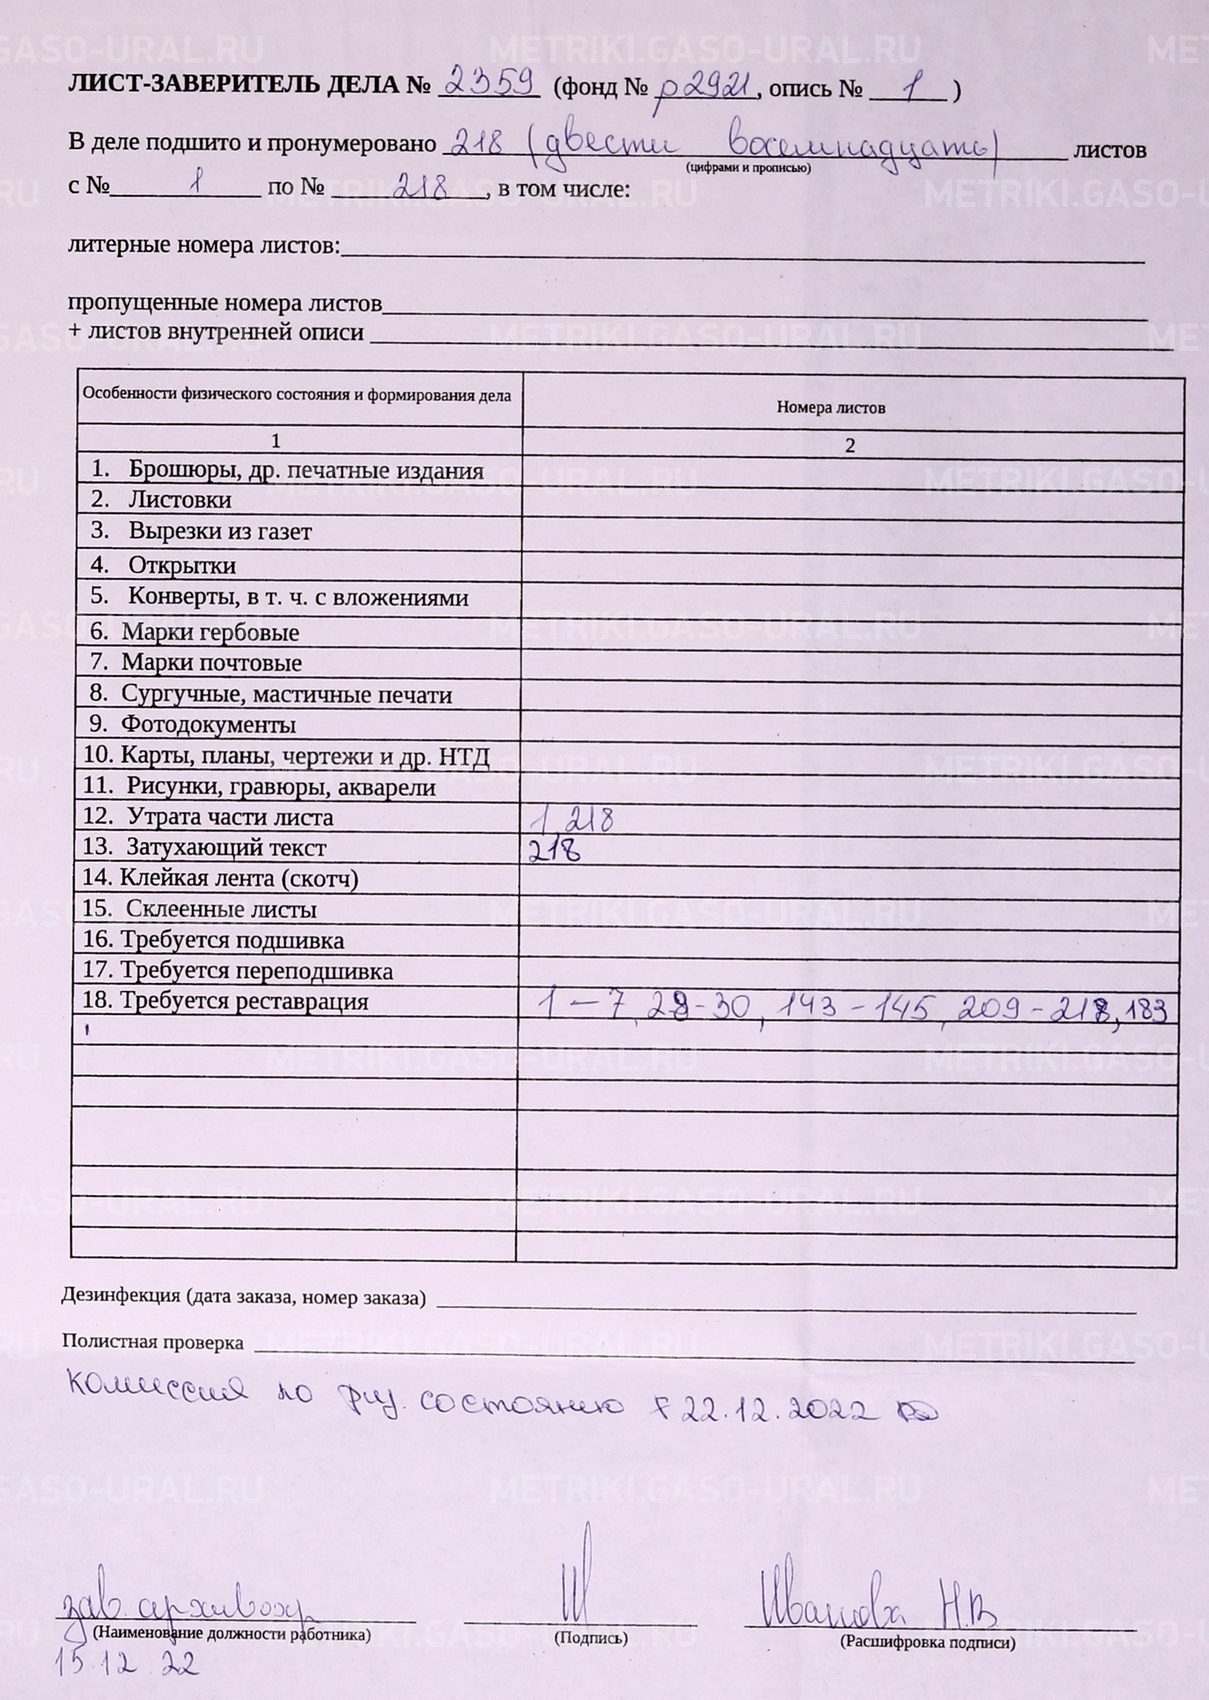 ЛИСТ-ЗАВЕРИТЕЛЬ ДЕЛА № 2359 (фонд № р2921, опись № 1 )
В деле подшито и пронумеровано 218 (двести восемнадцать) листов
(цифрами и прописью)
с № 1 по № 218, в том числе:
литерные номера листов:
пропущенные номера листов
+ листов внутренней описи
Особенности физического состояния и формирования дела Номера листов
1 2
1. Брошюры, др. печатные издания
2. Листовки
3. Вырезки из газет
4. Открытки
5. Конверты, в т. ч. с вложениями
6. Марки гербовые
7. Марки почтовые
8. Сургучные, мастичные печати
9. Фотодокументы
10. Карты, планы, чертежи и др. НТД
11. Рисунки, гравюры, акварели
12. Утрата части листа 1, 218
13. Затухающий текст 218
14. Клейкая лента (скотч)
15. Склеенные листы
16. Требуется подшивка
17. Требуется переподшивка
18. Требуется реставрация 1 – 7, 29-30, 143 - 145, 209 - 218, 183
Дезинфекция (дата заказа, номер заказа)
Полистная проверка
Комиссия по физ. состоянию 22.12.2022
зав. архивохр Иванова Н.В
(Наименование должности работника) (Подпись) (Расшифровка подписи)
15.12.22
METRIKI.GASO-URAL.RU